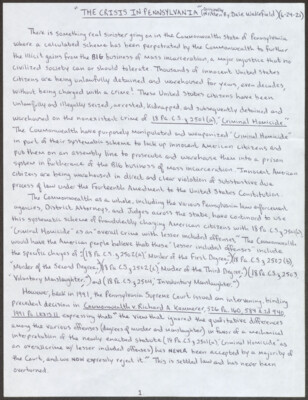 "THE CRISIS IN PENNSYLVANIA" (written By, Dale Wakefield) (6-24-21)
There is something real sinister going on in the Commonwealth State of Pennsylvania
where a calculated scheme has been perpetrated by the Commonwealth to further
the illicit gains from the BIG business of mass incarceration, a major injustice that no
civilized society can or should tolerate. Thousands of innocent United States
citizens are being unlawfully detained and warehoused for years, even decades,
without being charged with a crime! These United States citizens have been
unlawfully and illegally seized, arrested, kidnapped, and subsequently detained and
warehoused on the nonexistent crime of 18 Pa. C.S. § 2501(a), "Criminal Homicide."
The Commonwealth have purposely manipulated and weaponized "Criminal Homicide"
in part of their systematic scheme to lock up innocent American citizens and
put them on an assembly line to prosecute and warehouse them into a prison
system in furtherance of the BIG business of mass incarceration. Innocent American
citizens are being warehoused in direct and clear violation of substantive due
process of law under the Fourteenth Amendment to the United States Constitution.
The Commonwealth as a whole, including the various Pennsylvania law enforcement
agencies, District Attorneys, and Judges across the state, have continued to use
this systematic scheme of fraudulently charging American citizens with 18 Pa. C.S. § 2501(a),
Criminal Homicide" as an "overall crime with lesser included offenses." The Commonwealth
would have the American people believe that these "lesser included offenses" include
the specific charges of: (18 Pa. C.S. § 2502(a), Murder of the First Degree;) (18 Pa. C.S. § 2502(b),
Murder of the Second Degree;) (18 Pa. C.S. § 2502(c), Murder of the Third Degree;) (18 Pa. C.S. § 2503,
"Voluntary Manslaughter";) and (18 Pa. C.S. § 2504, "Involuntary Manslaughter.")
However, back in 1991, the Pennsylvania Supreme Court issued an intervening, binding
precedent decision in Commonwealth v. Richard E.
expressing that "the view that ignored the qualitative differences
among the various offenses (degrees of murder and manslaughter) in favor of a mechanical
interpretation of the newly enacted statute (18 Pa. C.S. § 2501(a) 'Criminal Homicide' as
an overall crime w/ lesser included offenses) has NEVER been accepted by a majority of
the Court, and we NOW expressly reject it." This is settled law and has never been
overturned.
1